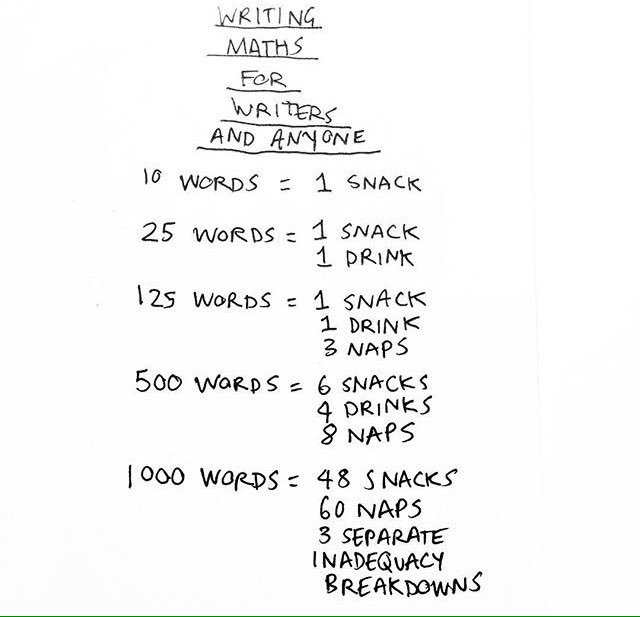 WRITING
MATHS
FOR
WRITERS
AND ANYONE
10 WORDS = 1 SNACK
25 WORDS = 1 SNACK
1 DRINK
125 WORDS = 1 SNACK
1 DRINK
3 NAPS
500 WORDS = 6 SNACKS
4 DRINKS
8 NAPS
1000 WORDS = 48 SNACKS
60 NAPS
3 SEPARATE
INADEQUACY
BREAKDOWNS